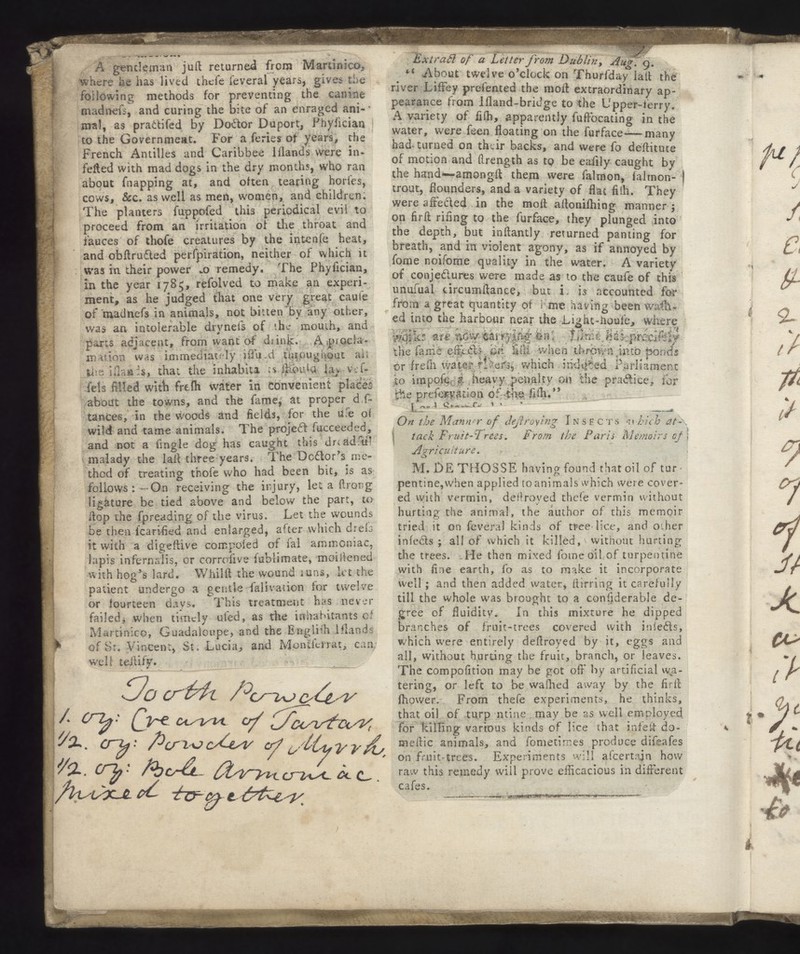 A gentleman juſt returned from Martinico,
where he has lived theſe ſeveral years, gives the
following methods for preventing the canine
madneſs, and curing the bite of an enraged ani-
mal, as practiſed by Doctor Duport, Phyſician
to the Government. For a ſeries of years, the
French Antilles and Caribbee Iſlands were in-
feſted with mad dogs in the dry months, who ran
about ſnapping at, and often tearing horſes,
cows, &c. as well as men, women, and children.
The planters ſuppoſed this periodical evil to
proceed from an irritation of the throat and
fauces of thoſe creatures by the intenſe heat,
and obſtructed perſpiration, neither of which it
was in their power to remedy. The Phyſician,
in the year 1785, reſolved to make an experi-
ment, as he judged that one very great cauſe
of madneſs in animals, not bitten by any other,
was an intolerable dryneſs of the mouth, and
parts adjacent, from want of drink. A procla-
mation was immediately iſſued throughout all
the iſlands, that the inhabitants ſhould lay veſ-
ſels filled with freſh water in convenient places
about the towns, and the ſame, at proper diſ-
tances, in the woods and fields, for the uſe of
wild and tame animals. The project ſucceeded,
and not a ſingle dog has caught this dreadful
malady the laſt three years. The Doctor's me-
thod of treating thoſe who had been bit, is as
follows:—On receiving the injury, let a ſtrong
ligature be tied above and below the part, to
ſtop the ſpreading of the virus. Let the wounds
be then ſcarified and enlarged, after which dreſs
it with a digeſtive compoſed of ſal ammoniac,
lapis infernalis, or corroſive ſublimate, moiſtened
with hog's lard. Whilſt the wound runs, let the
patient undergo a gentle ſalivation for twelve
or fourteen days. This treatment has never
failed, when timely uſed, as the inhabitants of
Martinico, Guadaloupe, and the Engliſh Iſlands
of St. Vincent, St. Lucia, and Montſerrat, can
well teſtify.
Tooth Powder
1. oz: Cream of Tartar,
1/2. oz: Powder of Myrrh,
1/2. oz: Bole Armoniac.
Mixed together.
Extract of a Letter from Dublin, Aug. 9.
“ About twelve o'clock on Thurſday laſt the
river Liffey preſented the moſt extraordinary ap-
pearance from Iſland-bridge to the Upper-ferry.
A variety of fiſh, apparently ſuffocating in the
water, were ſeen floating on the ſurface—many
had turned on their backs, and were ſo deſtitute
of motion and ſtrength as to be eaſily caught by
the hand—amongſt them were ſalmon, ſalmon-
trout, flounders, and a variety of flat fiſh. They
were affected in the moſt aſtoniſhing manner;
on firſt riſing to the ſurface, they plunged into
the depth, but inſtantly returned panting for
breath, and in violent agony, as if annoyed by
ſome noiſome quality in the water. A variety
of conjectures were made as to the cauſe of this
unuſual circumſtance, but it is accounted for
from a great quantity of lime having been waſh-
ed into the harbour near the Light-houſe, where
works are now carrying on. Lime has preciſely
the ſame effects on fiſh when thrown into ponds
or freſh water rivers, which induced Parliament
to impoſe a heavy penalty on the practice, for
the preſervation of the fiſh.”
On the Manner of deſtroying INSECTS which at-
tack Fruit-Trees. From the Paris Memoirs of
Agriculture.
M. DE THOSSE having found that oil of tur-
pentine, when applied to animals which were cover-
ed with vermin, deſtroyed theſe vermin without
hurting the animal, the author of this memoir
tried it on ſeveral kinds of tree lice, and other
inſects; all of which it killed, without hurting
the trees. He then mixed ſome oil of turpentine
with fine earth, ſo as to make it incorporate
well; and then added water, ſtirring it carefully
till the whole was brought to a conſiderable de-
gree of fluidity. In this mixture he dipped
branches of fruit-trees covered with inſects,
which were entirely deſtroyed by it, eggs and
all, without hurting the fruit, branch, or leaves.
The compoſition may be got off by artificial wa-
tering, or left to be waſhed away by the firſt
ſhower. From theſe experiments, he thinks,
that oil of turpentine may be as well employed
for killing various kinds of lice that infeſt do-
meſtic animals, and ſometimes produce diſeaſes
on fruit-trees. Experiments will aſcertain how
raw this remedy will prove efficacious in different
caſes.